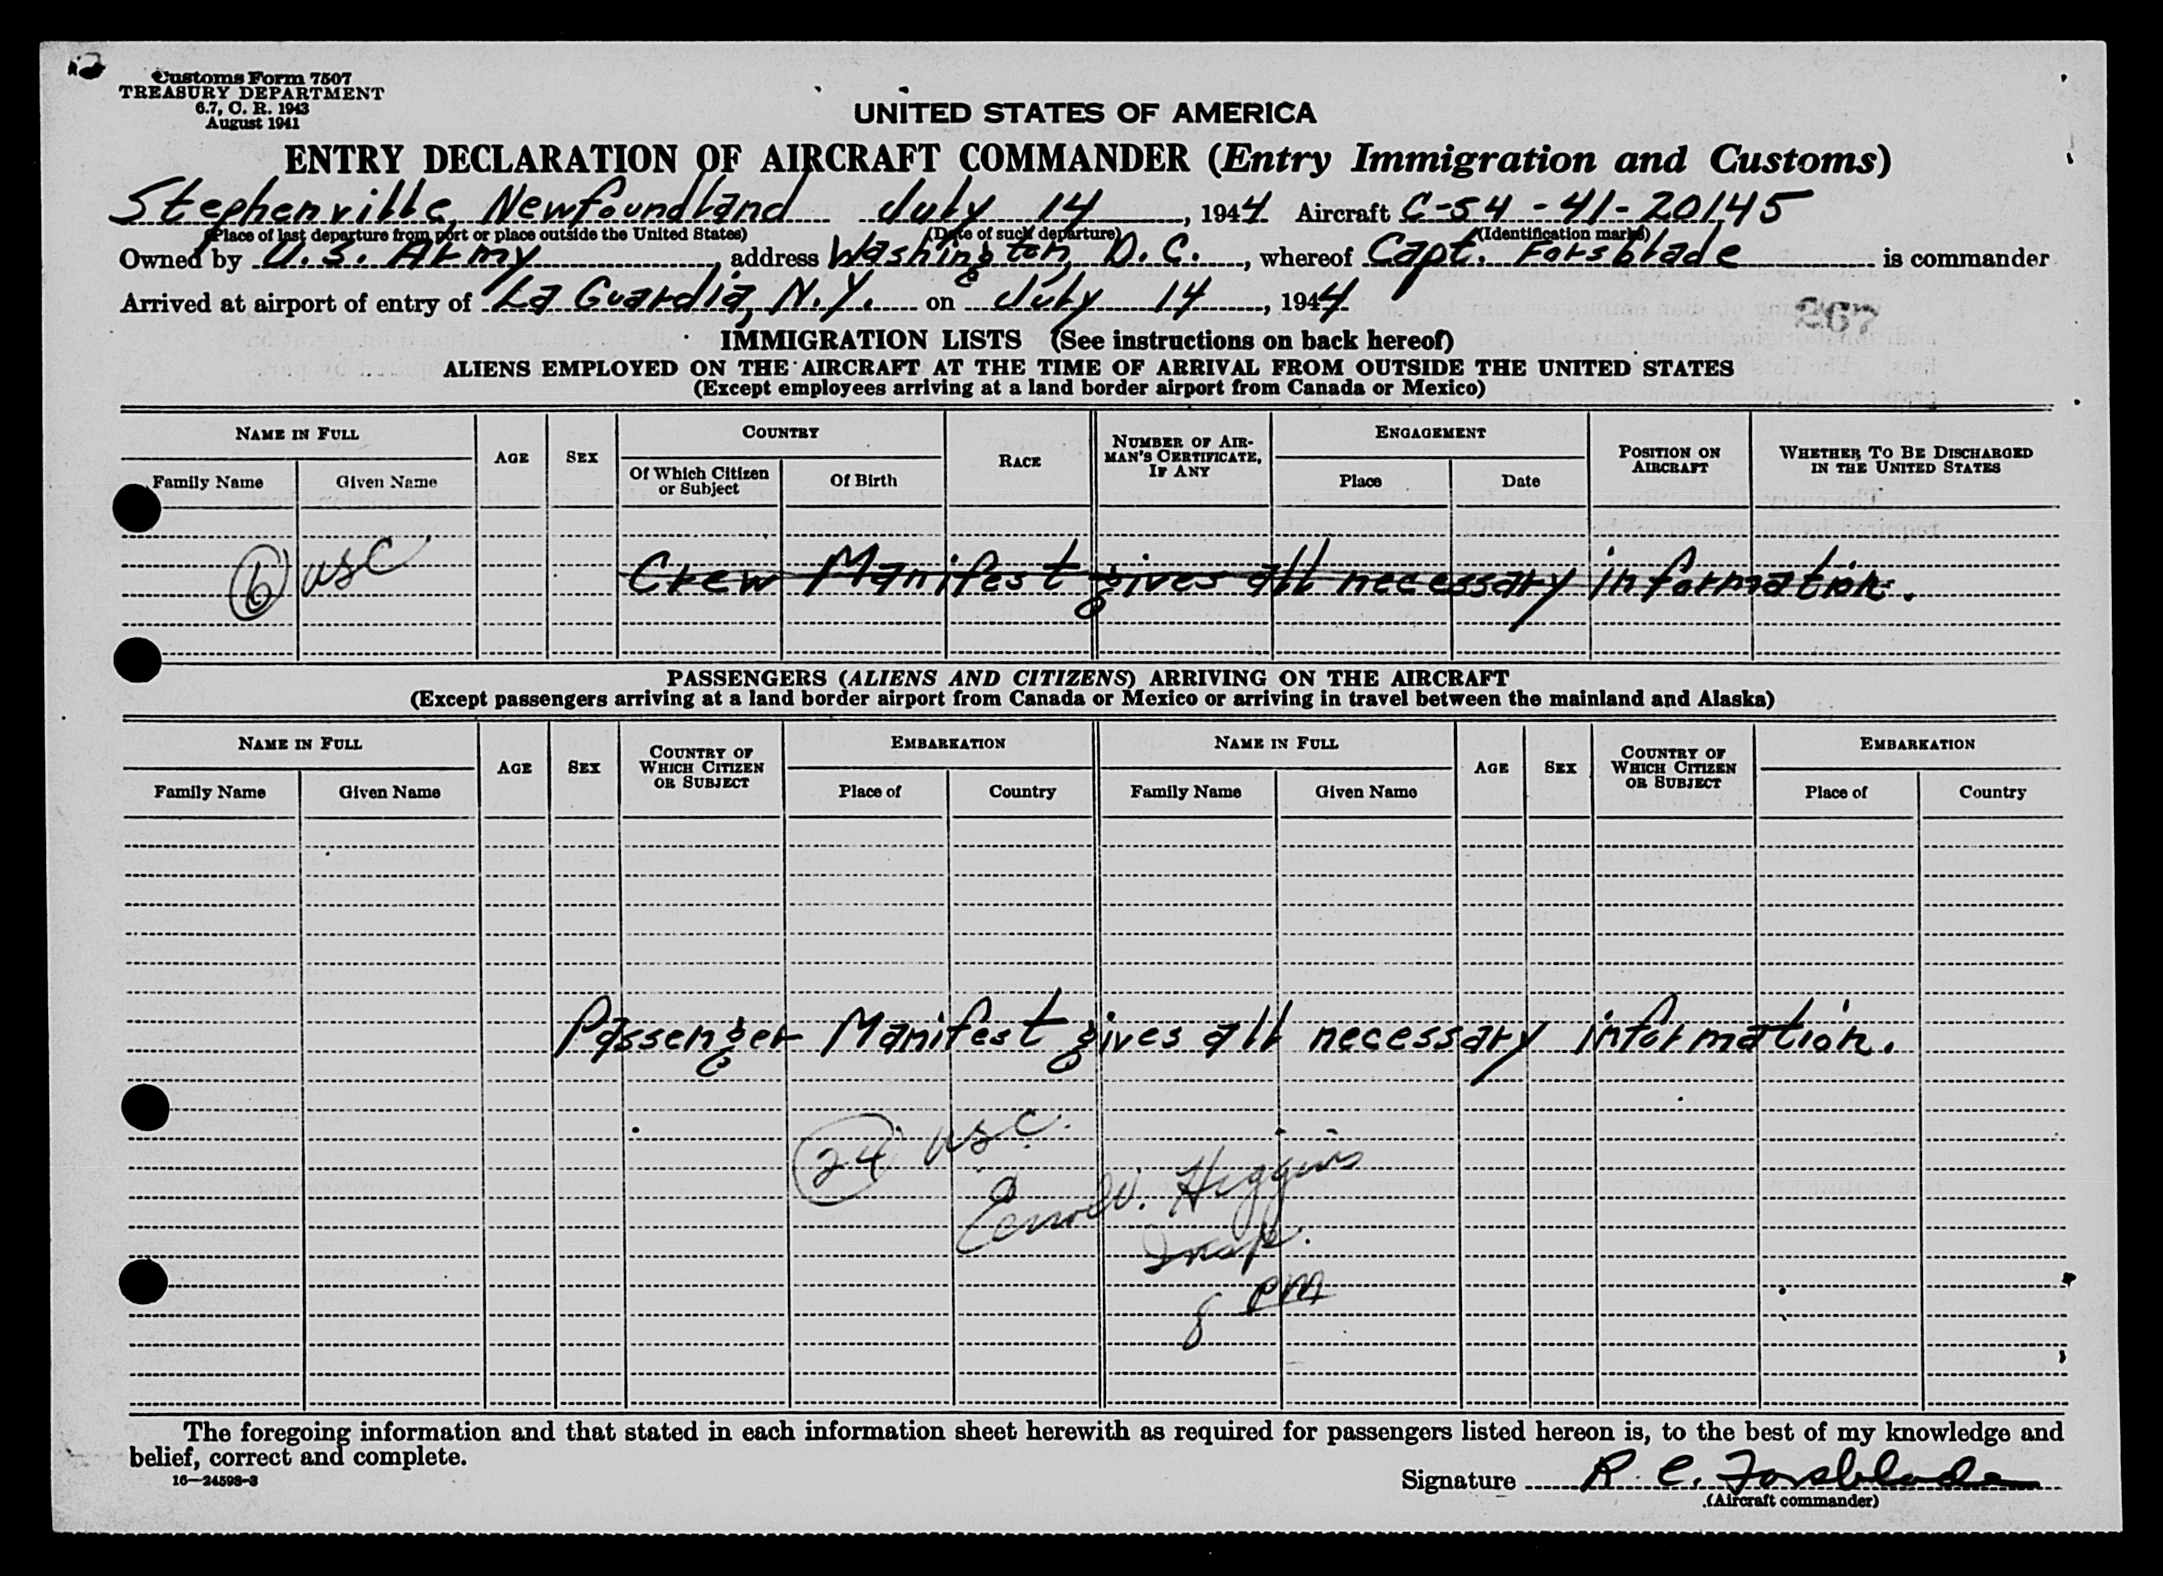 Customs Form 7507
TREASURY DEPARTMENT
6.7, C. R. 1943
August 1941
UNITED STATES OF AMERICA
ENTRY DECLARATION OF AIRCRAFT COMMANDER (Entry Immigration and Customs)
Stephenville, Newfoundland July 14, 1944 Aircraft C-54-41-20145
(Place of last departure from port or place outside the United States) (Date of such departure) (Identification marks)
Owned by U.S. Army, address Washington, D.C., whereof Capt. Forsblade is commander
Arrived at airport of entry of La Guardia, N.Y. on July 14, 1944
267
IMMIGRATION LISTS (See instructions on back hereof)
ALIENS EMPLOYED ON THE AIRCRAFT AT THE TIME OF ARRIVAL FROM OUTSIDE THE UNITED STATES
(Except employees arriving at a land border airport from Canada or Mexico)
NAME IN FULL AGE SEX COUNTRY RACE NUMBER OF AIRMAN'S CERTIFICATE, IF ANY ENGAGEMENT POSITION ON AIRCRAFT WHETHER TO BE DISCHARGED IN THE UNITED STATES
Family Name Given Name Of Which Citizen or Subject Of Birth Place Date
6 USC Crew Manifest gives all necessary information.
PASSENGERS (ALIENS AND CITIZENS) ARRIVING ON THE AIRCRAFT
(Except passengers arriving at a land border airport from Canada or Mexico or arriving in travel between the mainland and Alaska)
NAME IN FULL AGE SEX COUNTRY OF WHICH CITIZEN OR SUBJECT EMBARKATION NAME IN FULL AGE SEX COUNTRY OF WHICH CITIZEN OR SUBJECT EMBARKATION
Family Name Given Name Place of Country Family Name Given Name Place of Country
Passenger Manifest gives all necessary information.
24 USC.
W. Higgins
Insp.
8 PM
The foregoing information and that stated in each information sheet herewith as required for passengers listed hereon is, to the best of my knowledge and
belief, correct and complete.
16—24598-3
Signature R. C. Forsblade
(Aircraft commander)